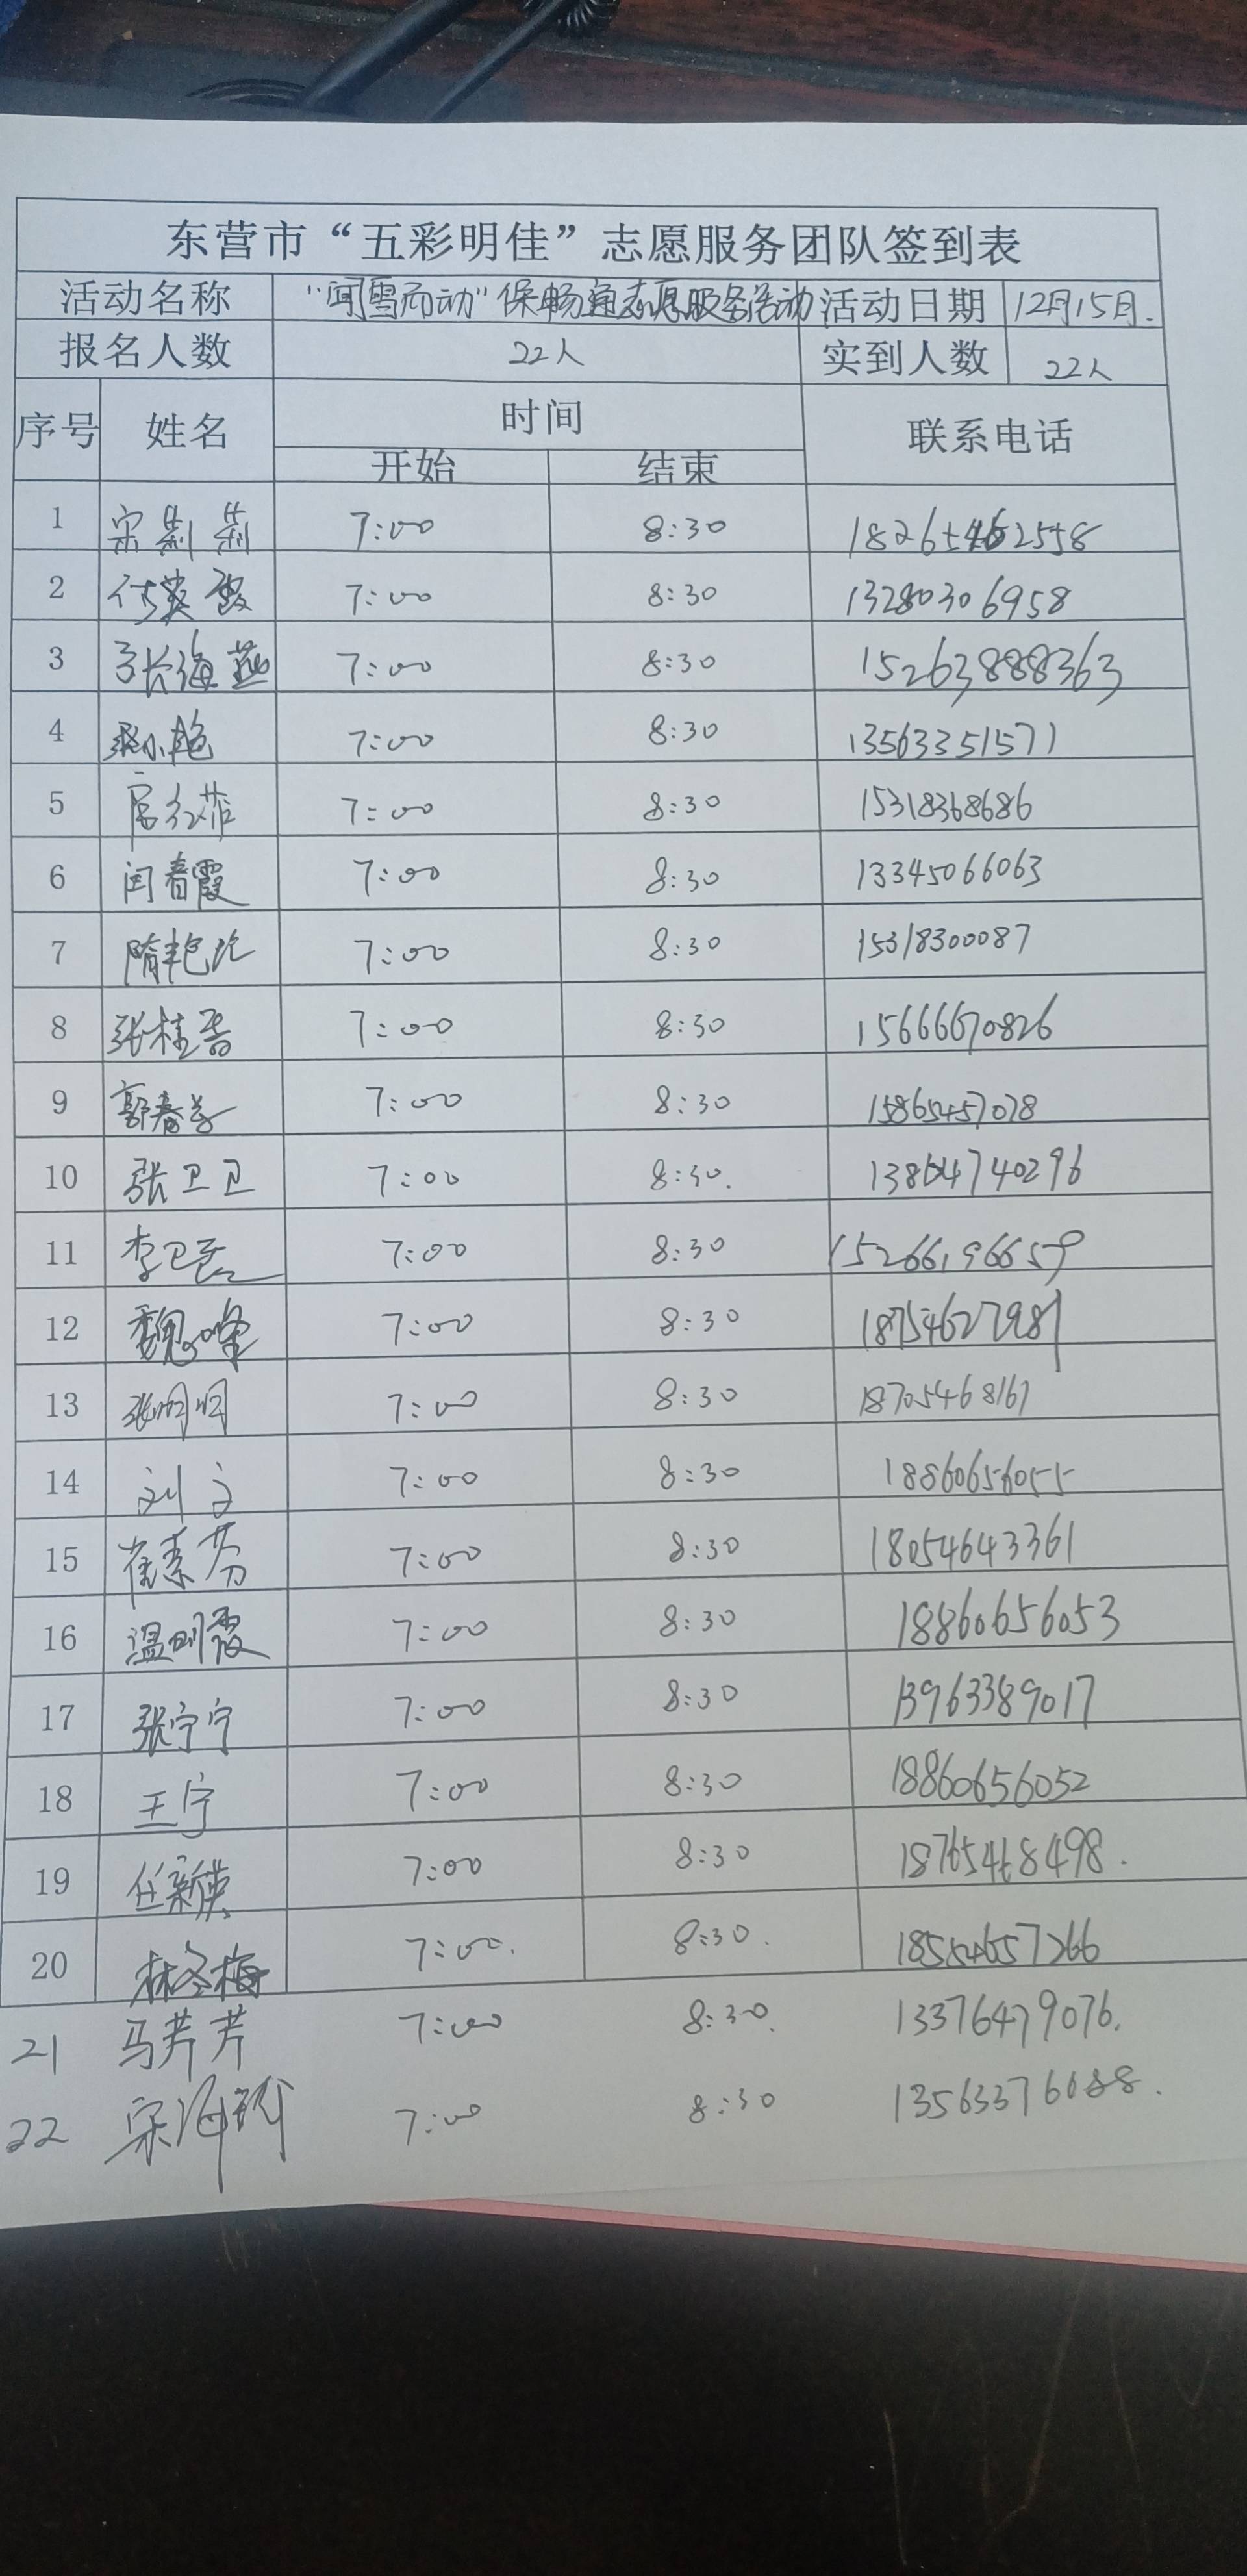 东营市“五彩明佳”志愿服务团队签到表
活动名称 “闻雪而动”保畅通志愿服务活动 活动日期 12月15日.
报名人数 22人 实到人数 22人
序号 姓名 时间 联系电话
开始 结束
1 宋 7:00 8:30 18265462558
2 付英霞 7:00 8:30 13280306958
3 张海燕 7:00 8:30 15263888363
4 小艳 7:00 8:30 13563351571
5 7:00 8:30 15318368686
6 闫春霞 7:00 8:30 13345066063
7 隋艳 7:00 8:30 15318300087
8 张桂香 7:00 8:30 15666670826
9 郭春芳 7:00 8:30 15865457078
10 张卫卫 7:00 8:30. 13864740296
11 李卫 7:00 8:30 15266196659
12 魏峰 7:00 8:30 18754627981
13 张明明 7:00 8:30 18705468167
14 刘文 7:00 8:30 18860656055
15 崔素芬 7:00 8:30 18054643361
16 温明霞 7:00 8:30 18860656053
17 张宁宁 7:00 8:30 13963389017
18 王宁 7:00 8:30 18860656052
19 任新英 7:00 8:30 18765468498.
20 林冬梅 7:00. 8:30. 18554657266
21 马芹芹 7:00 8:30. 13376479076.
22 宋海 7:00 8:30 13563376088.